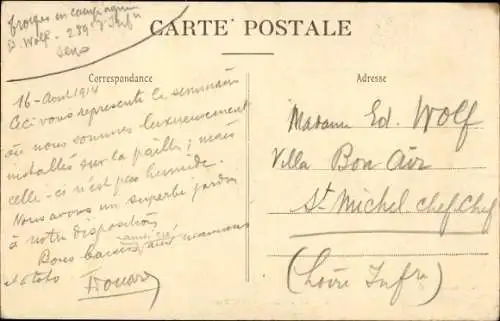 Troupes en campagne
D. Wolf - 289e Infie
Sens
CARTE POSTALE
Correspondance
Adresse
16 - Août 1914
Ceci vous représente le séminaire
où nous sommes luxueusement
installés sur la paille ; mais
celle-ci n'est pas humide.
Nous avons un superbe jardin
à notre disposition
Bons baisers aux mamans
et
Madame Ed. Wolf
Villa Bon Air
St Michel Chef Chef
(Loire Infre)